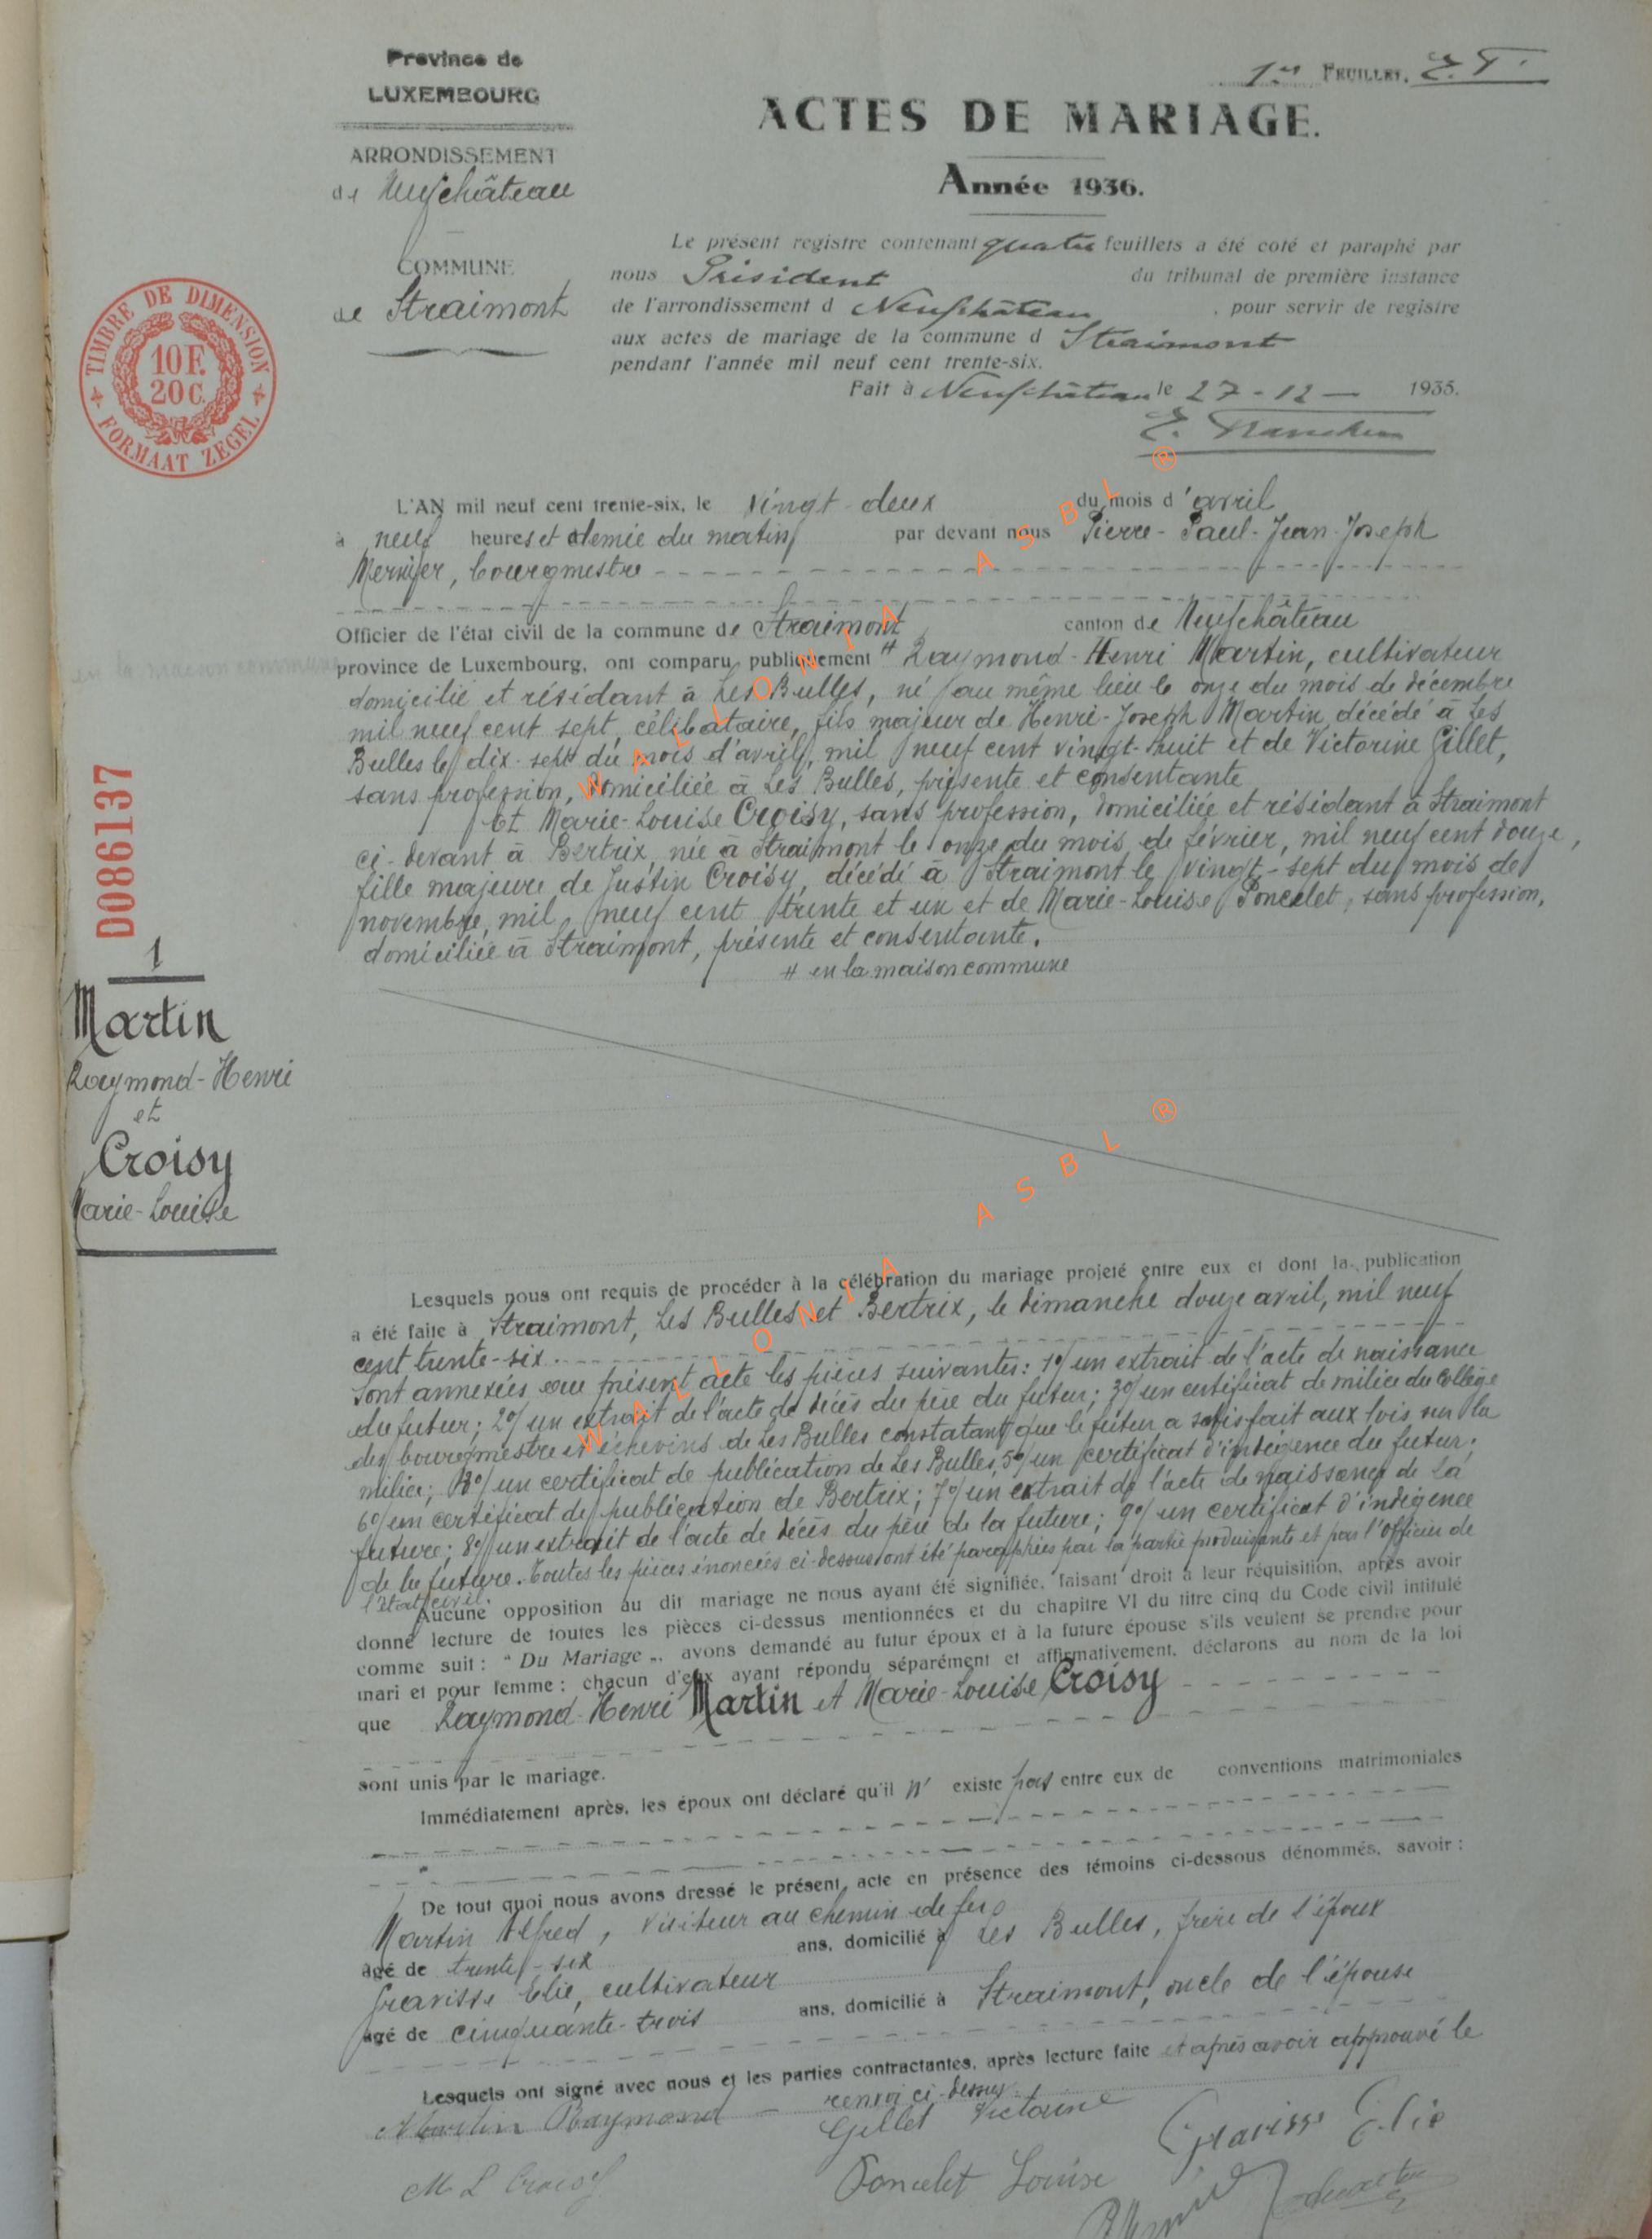 Province de
LUXEMBOURG
ARRONDISSEMENT
de Neufchâteau
COMMUNE
de Straimont
TIMBRE DE DIMENSION
10 F.
20 C.
FORMAAT ZEGEL
1er FEUILLET. E. T.
ACTES DE MARIAGE.
Année 1936.
Le présent registre contenant quatre feuillets a été coté et paraphé par
nous Président du tribunal de première instance
de l'arrondissement d Neufchâteau, pour servir de registre
aux actes de mariage de la commune d Straimont
pendant l'année mil neuf cent trente-six.
Fait à Neufchâteau le 27-12- 1935.
L'AN mil neuf cent trente-six, le vingt-deux du mois d'avril
à neuf heures et demie du matin, par devant nous Pierre-Paul-Jean-Joseph
bourgmestre
Officier de l'état civil de la commune de Straimont, canton de Neufchâteau
province de Luxembourg, ont comparu publiquement # Raymond-Henri Martin, cultivateur
en la maison commune
domicilié et résidant à Les Bulles, né au même lieu le onze du mois de décembre
mil neuf cent sept, célibataire, fils majeur de Henri-Joseph Martin, décédé à Les
Bulles le dix-sept du mois d'avril, mil neuf cent vingt-huit et de Victorine Gillet,
sans profession, domiciliée à Les Bulles, présente et consentante
Et Marie-Louise Croisy, sans profession, domiciliée et résidant à Straimont
ci-devant à Bertrix, née à Straimont le onze du mois de février, mil neuf cent douze,
fille majeure de Justin Croisy, décédé à Straimont le vingt-sept du mois de
novembre, mil neuf cent trente et un et de Marie-Louise Poncelet, sans profession,
domiciliée à Straimont, présente et consentante.
# en la maison commune
D086137
1
Martin
Raymond-Henri
et
Croisy
Marie-Louise
Lesquels nous ont requis de procéder à la célébration du mariage projeté entre eux et dont la publication
a été faite à Straimont, Les Bulles et Bertrix, le dimanche douze avril, mil neuf
cent trente-six.
Sont annexées au présent acte les pièces suivantes: 1°/ un extrait de l'acte de naissance
du futur; 2°/ un extrait de l'acte de décès du père du futur; 3°/ un certificat de milice du Collège
des bourgmestre et échevins de Les Bulles constatant que le futur a satisfait aux lois sur la
milice; un certificat de publication de Les Bulles, 5°/ un certificat d'indigence du futur;
6°/ un certificat de publication de Bertrix; 7°/ un extrait de l'acte de naissance de la
future; 8°/ un extrait de l'acte de décès du père de la future; 9°/ un certificat d'indigence
de la future. Toutes les pièces énoncées ci-dessus ont été paraphées par la partie produisante et par l'Officier de
l'état civil.
Aucune opposition au dit mariage ne nous ayant été signifiée, faisant droit à leur réquisition, après avoir
donné lecture de toutes les pièces ci-dessus mentionnées et du chapitre VI du titre cinq du Code civil intitulé
comme suit: "Du Mariage", avons demandé au futur époux et à la future épouse s'ils veulent se prendre pour
mari et pour femme; chacun d'eux ayant répondu séparément et affirmativement, déclarons au nom de la loi
que Raymond-Henri Martin et Marie-Louise Croisy
sont unis par le mariage.
Immédiatement après, les époux ont déclaré qu'il n'existe pas entre eux de conventions matrimoniales
De tout quoi nous avons dressé le présent acte en présence des témoins ci-dessous dénommés, savoir:
Martin Alfred, visiteur au chemin de fer
âgé de trente-six ans, domicilié à Les Bulles, frère de l'époux
Gravisse Elie, cultivateur
âgé de cinquante-trois ans, domicilié à Straimont, oncle de l'épouse
Lesquels ont signé avec nous et les parties contractantes, après lecture faite et après avoir approuvé le
renvoi ci-dessus.
Martin Raymond Gillet Victorine Gravisse Elie
M L Croisy Poncelet Louise
WALLONIA ASBL ®
WALLONIA ASBL ®